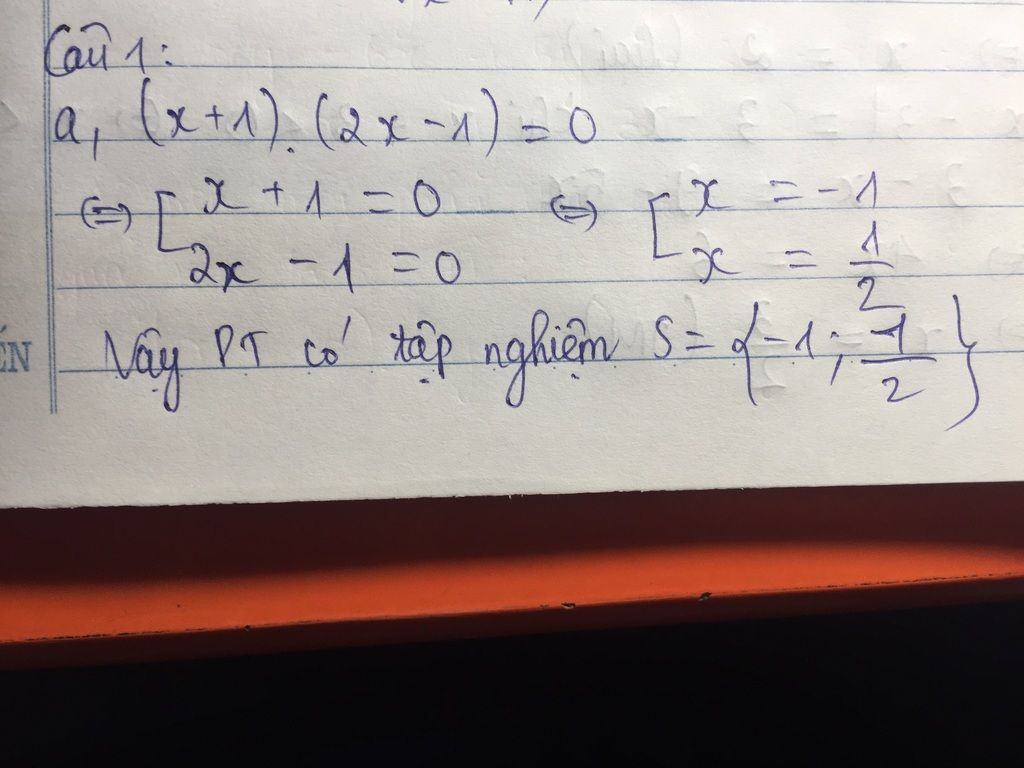 Câu 1:
a, (x+1).(2x-1)=0
⇔ [ x + 1 = 0 ⇔ [ x = -1
2x - 1 = 0 x = 1/2
ẾN Vậy PT có tập nghiệm S = {-1; 1/2}